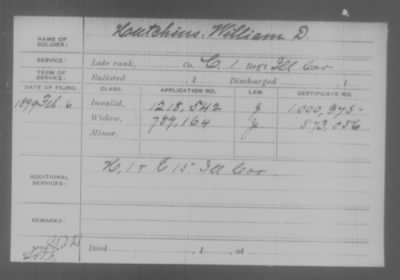 NAME OF SOLDIER: Hutchins, William D.
SERVICE: Late rank, Co. C, 1 Reg't Ill Cav
TERM OF SERVICE: Enlisted , 1 Discharged , 1
DATE OF FILING. CLASS. APPLICATION NO. LAW. CERTIFICATE NO.
1899 Feb. 6 Invalid, 1218,542 J 1.000,975
Widow, 789,164 J 573,056
Minor,
ADDITIONAL SERVICES: K, 1 & E 15 Ill Cav
REMARKS:
Died , 1 , at